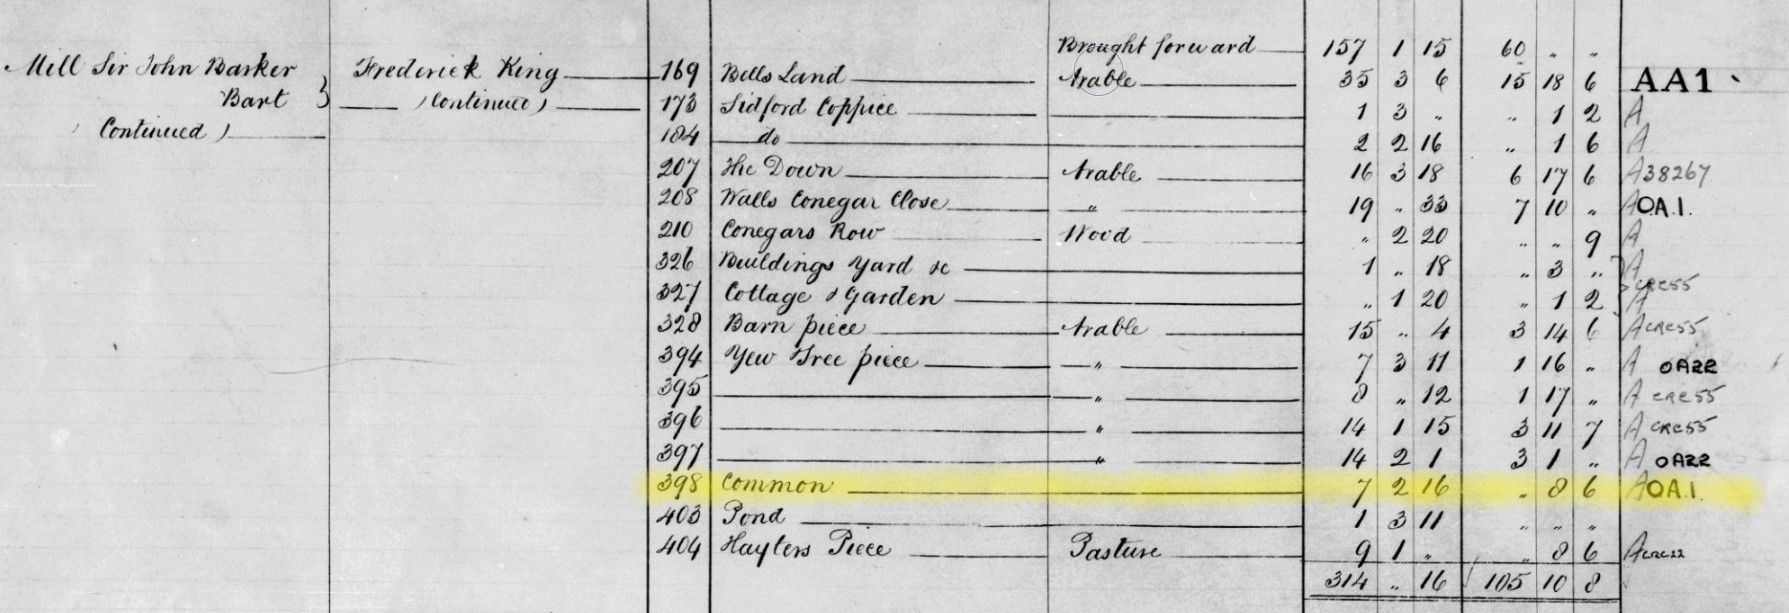 Brought forward 157 1 15 60 " "
Mill Sir John Barker Frederick King 169 Bells Land Arable 35 3 6 15 18 6 AA1
Bart } (Continued) 173 Sidford Coppice 1 3 " " 1 2 A
(Continued) 184 do 2 2 16 " 1 6 A
207 The Down Arable 16 3 18 6 17 6 A 38267
208 Walls Conegar Close " 19 " 33 7 10 " A OA.1.
210 Conegars Row Wood " 2 20 " " 9 A
326 Buildings Yard &c 1 " 18 " 3 " A
CRC55
327 Cottage & Garden " 1 20 " 1 2 A
328 Barn piece Arable 15 " 4 3 14 6 A CRC55
394 Yew Tree piece " 7 3 11 1 16 " A OA22
395 " 8 " 12 1 17 " A CRC55
396 " 14 1 15 3 11 7 A CRC55
397 " 14 2 1 3 1 " A OA22
398 Common 7 2 16 " 8 6 A OA.1.
403 Pond 1 3 11 " " "
404 Hayters Piece Pasture 9 1 " " 8 6 A CRC22
314 " 16 105 10 8